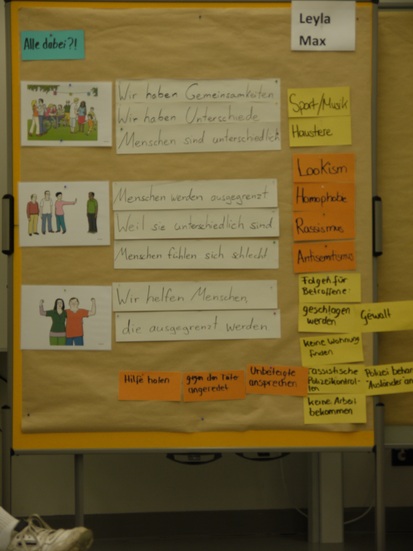 Leyla
Max
Alle dabei?!
Wir haben Gemeinsamkeiten
Wir haben Unterschiede
Menschen sind unterschiedlich
Sport/Musik
Haustiere
Menschen werden ausgegrenzt
Weil sie unterschiedlich sind
Menschen fühlen sich schlecht
Lookism
Homophobie
Rassismus
Antisemitismus
Wir helfen Menschen,
die ausgegrenzt werden
Folgen für
Betroffene:
geschlagen
werden
Gewalt
keine Wohnung
finden
rassistische
Polizeikontrol-
len
Polizei
keine Arbeit
bekommen
Hilfe holen
gegen den Täter
angeredet
Unbeteiligte
ansprechen